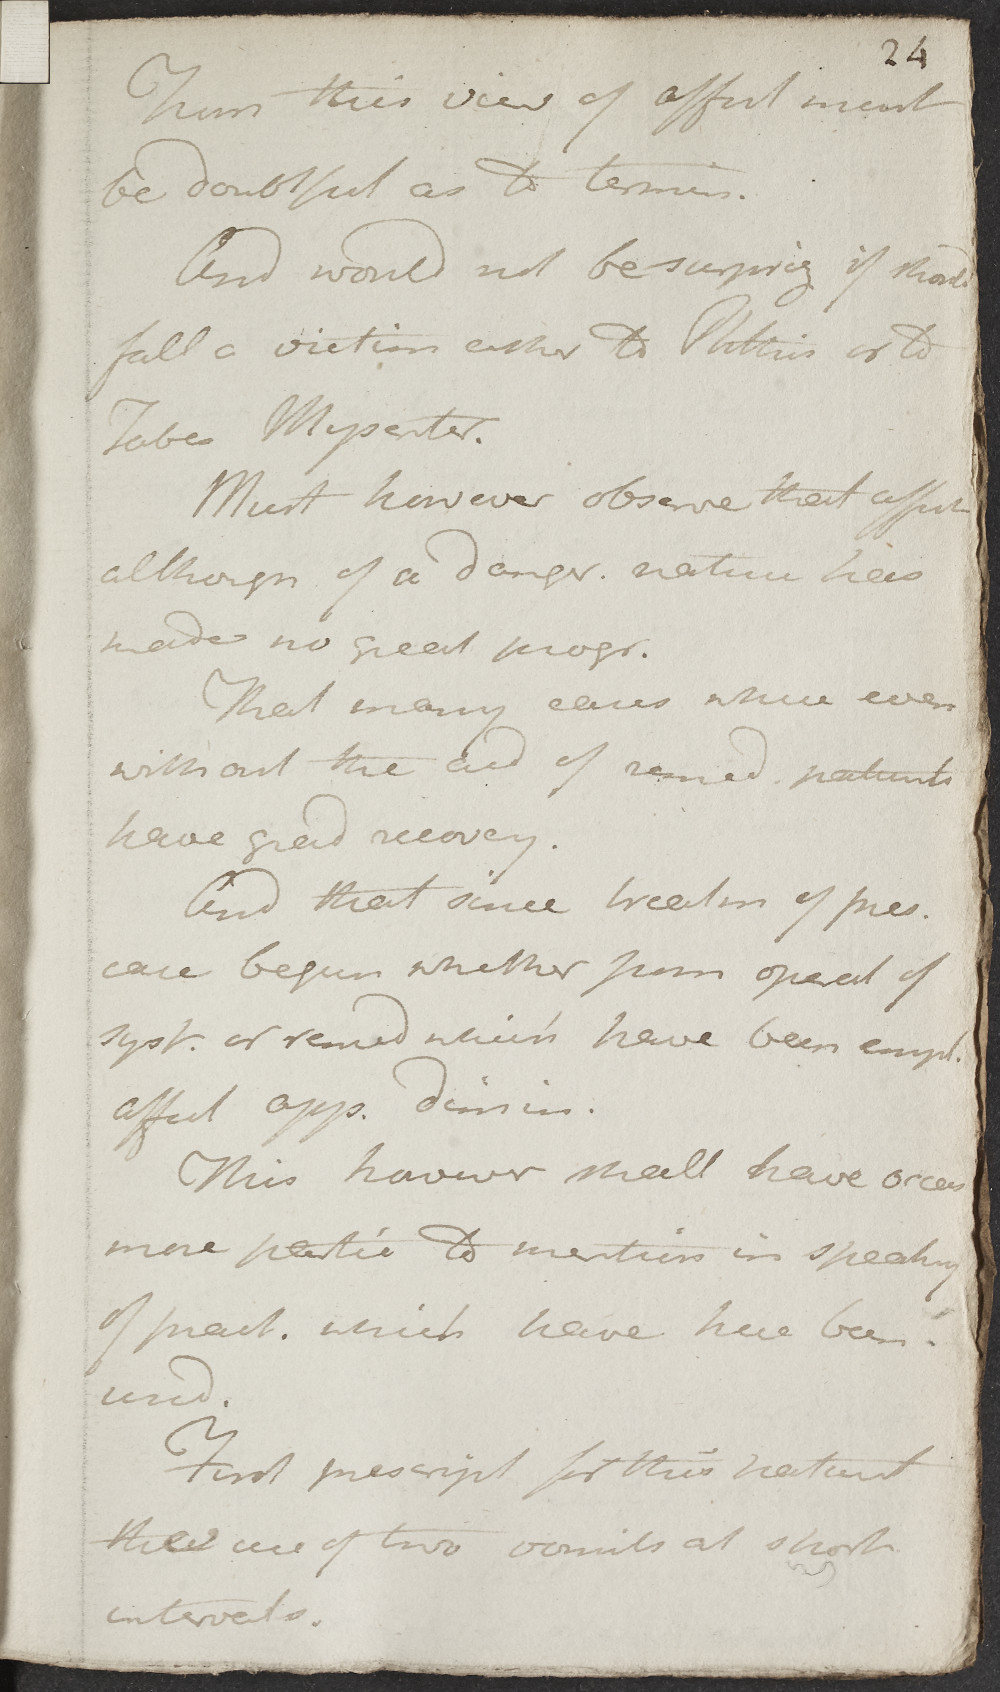 24
From this view of affect must
be doubtful as to termin.
And would not be surprisg if should
fall a victim either to Phthisis or to
Tabes Mesenter.
Must however observe that affect
although of a danger. nature has
made no great progr.
That many cases where even
without the aid of remed. patients
have grad recovery.
And that since treatm of pres.
case begun whether from operat of
syst. or remed which have been empl.
affect app. dimin.
This however shall have occas
more partic to mention in speaking
of pract. which have here been
used.
First prescript for this patient
the use of two vomits at short
intervals.